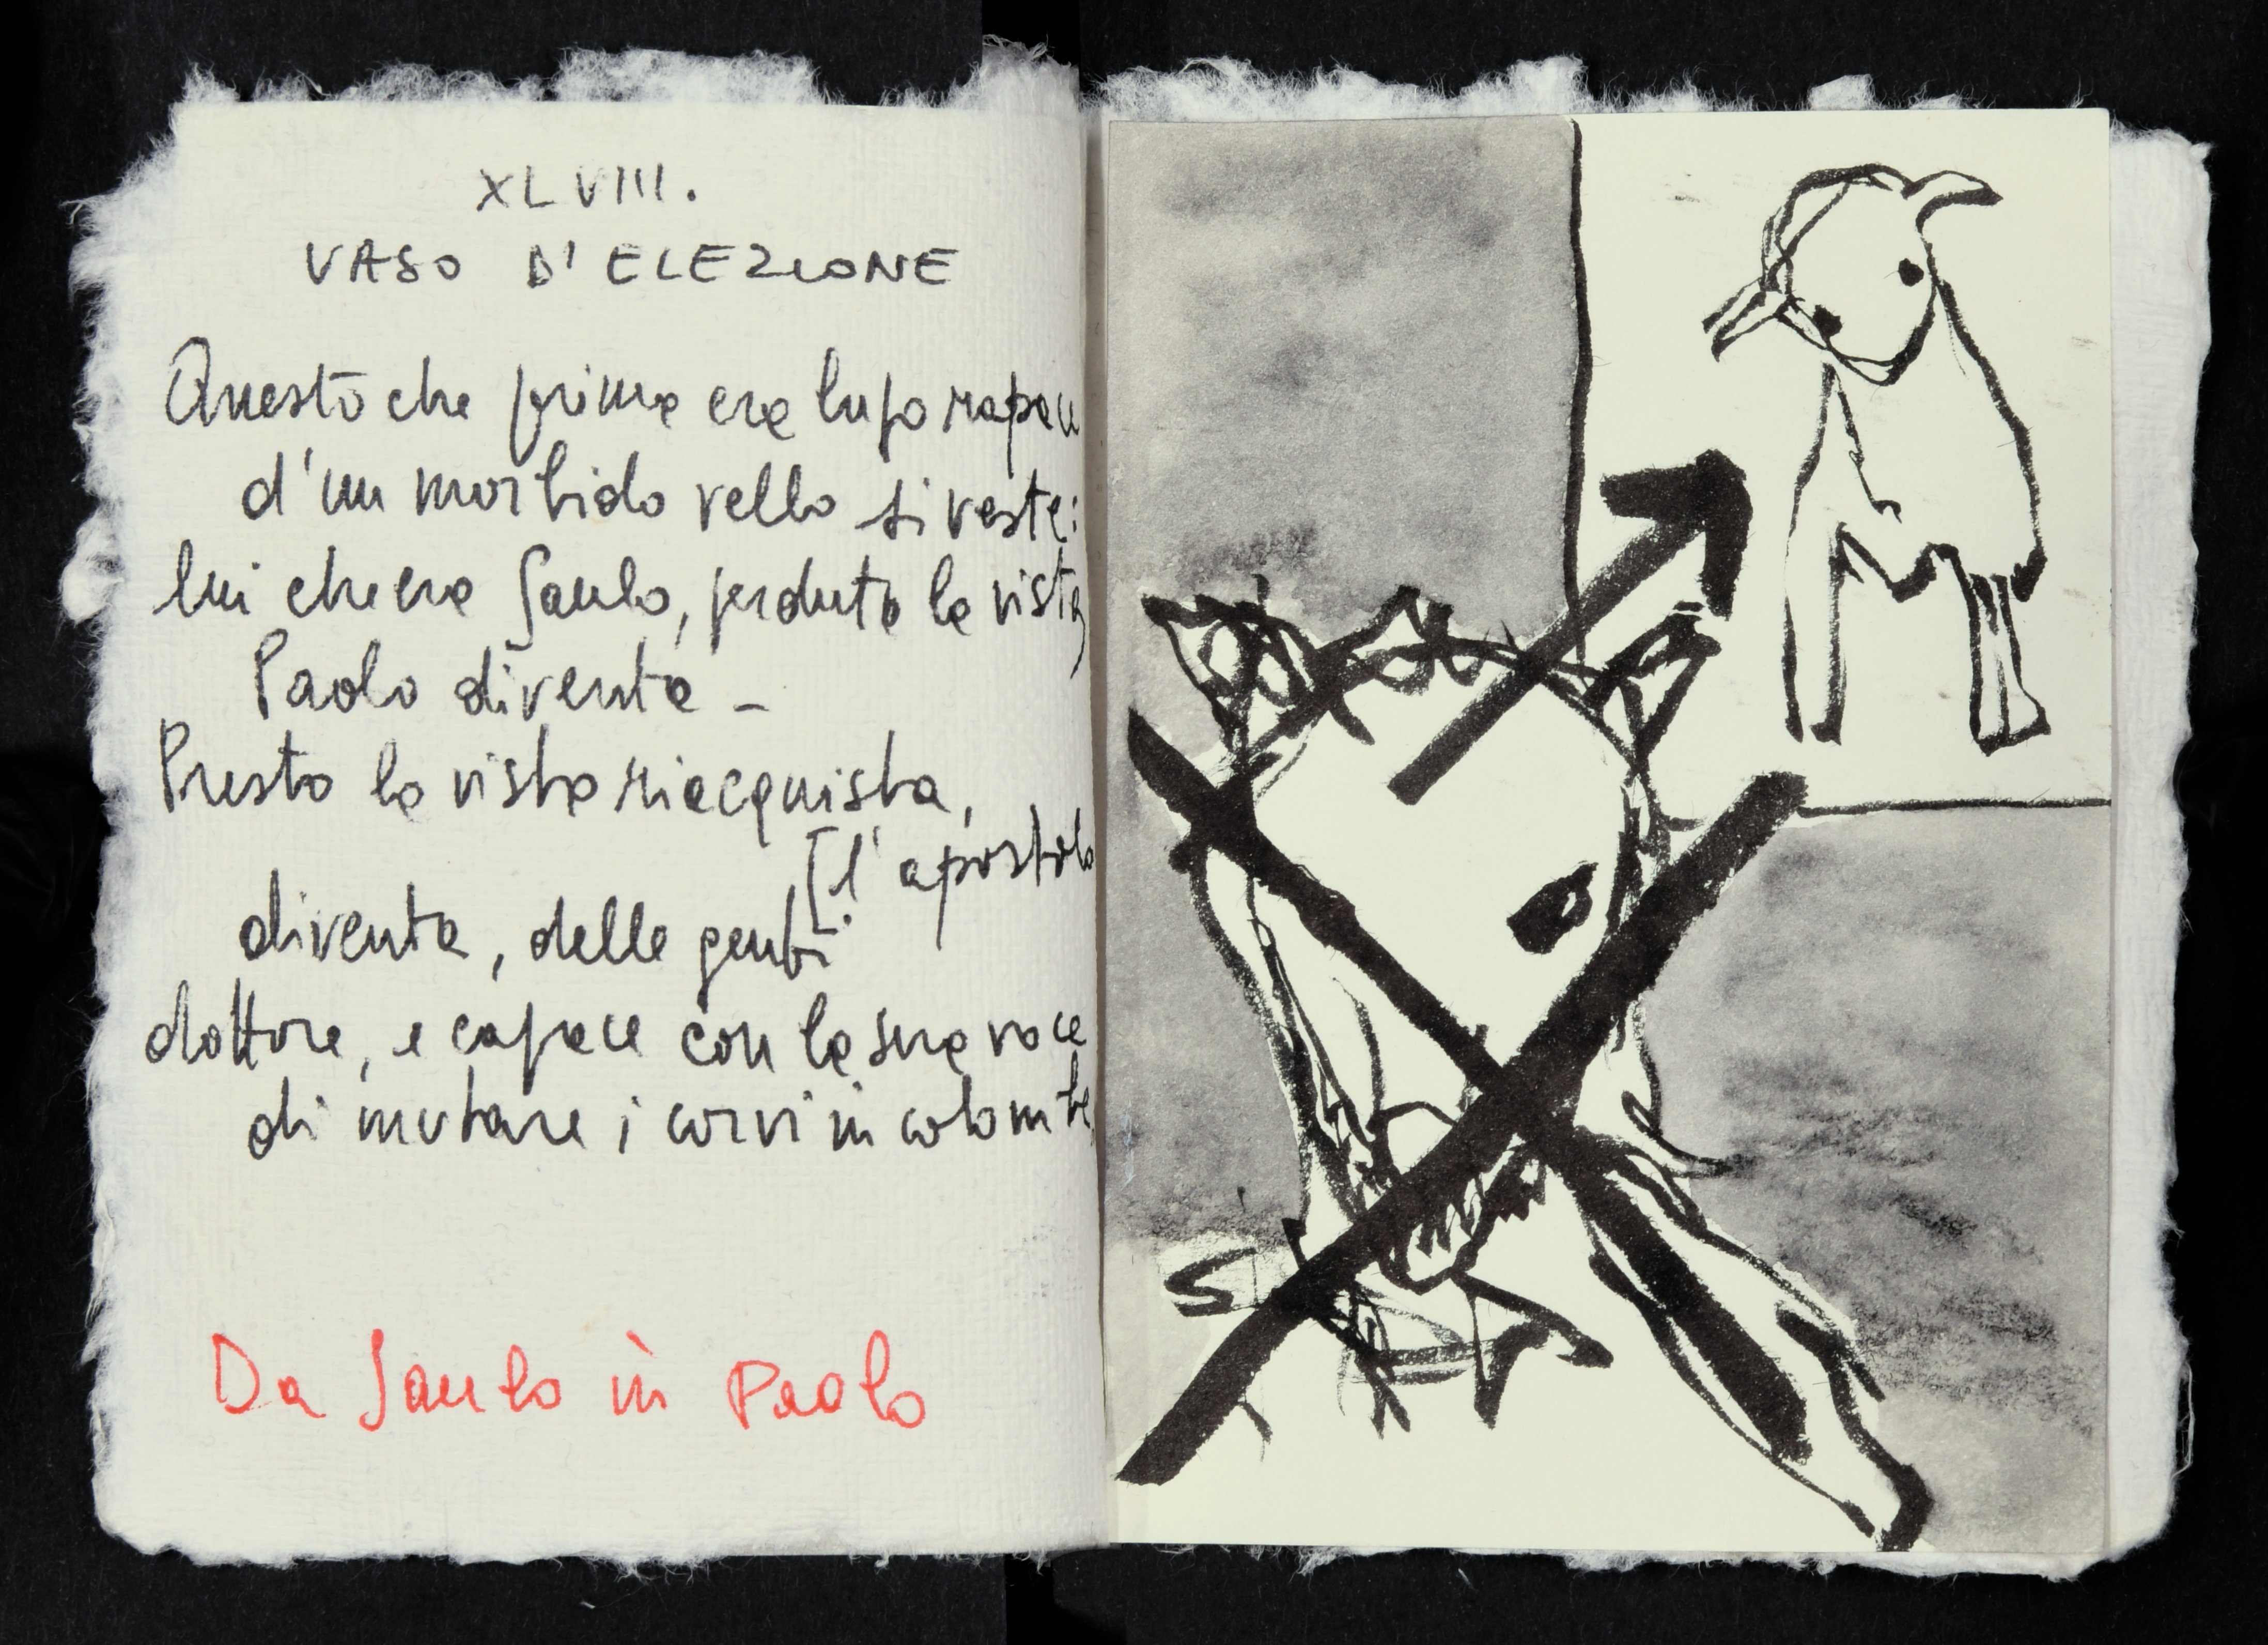 XLVIII.
VASO D'ELEZIONE
Questo che prima era lupo rapace
d'un morbido vello si veste:
lui che era Saulo, perduta la vista,
Paolo diventa –
Presto la vista riacquista,
[l'apostolo
diventa, delle genti
dottore, e capace con la sua voce
di mutare i corvi in colombe.
Da Saulo in Paolo